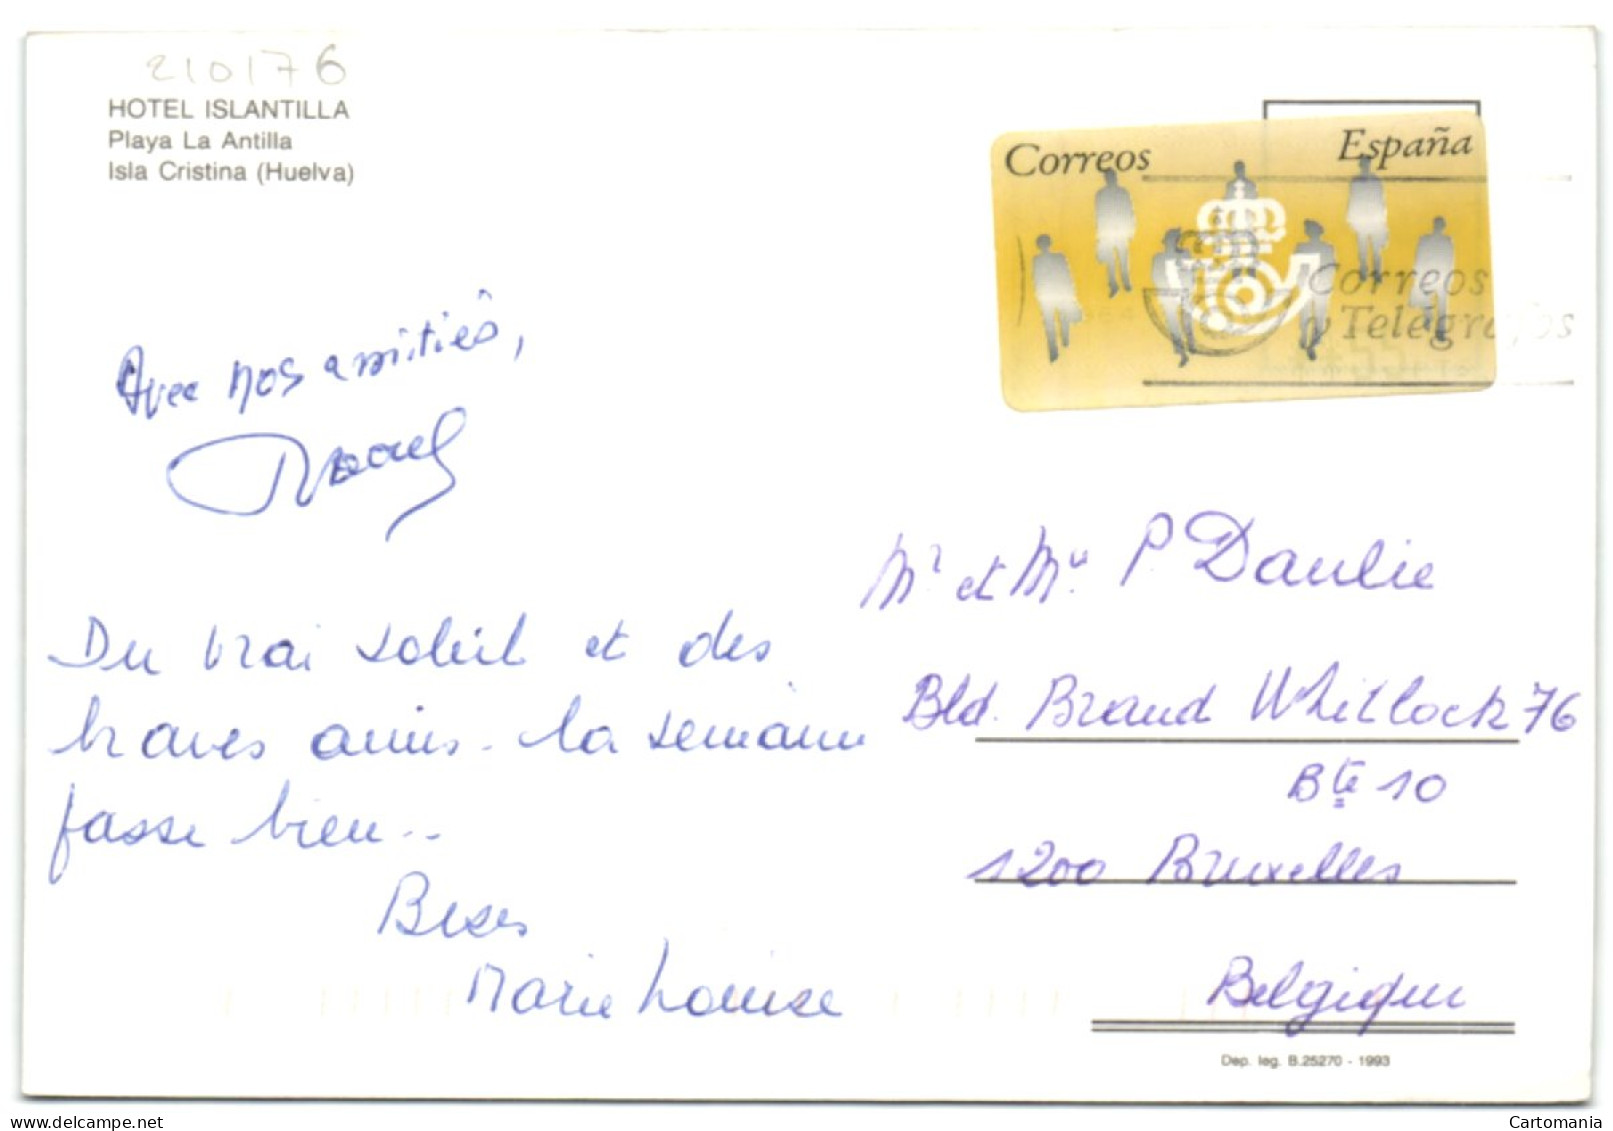 210176
HOTEL ISLANTILLA
Playa La Antilla
Isla Cristina (Huelva)
Correos España
Correos
y Telégrafos
Avec nos amitiés,
Du vrai soleil et des
braves amis. la semaine
passe bien..
Bises
Marie Louise
Mr et Me P. Daulie
Bld. Brand Whitlock 76
Bte 10
1200 Bruxelles
Belgique
Dep. leg. B.25270 - 1993
Cartomania